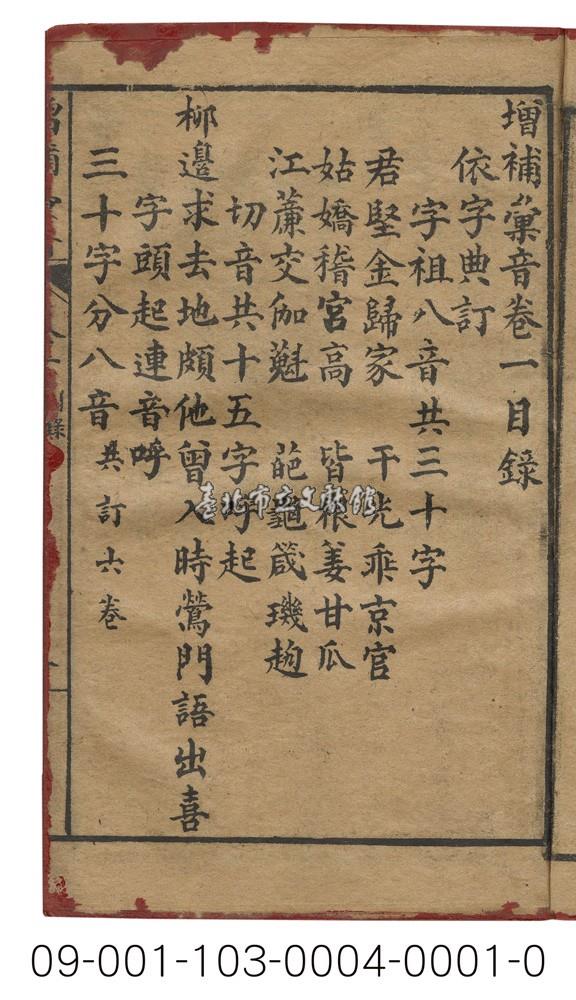 增補彙音卷一目錄
依字典訂
字祖八音共三十字
君堅金歸家 干光乖京官
姑嬌稽宮高 皆根姜甘瓜
江蒹交伽魀 葩龜箴璣趙
切音共十五字呼起
柳邊求去地頗他曾入時鶯門語出喜
字頭起連音呼
三十字分八音共訂六卷
臺北市立文獻館
09-001-103-0004-0001-0